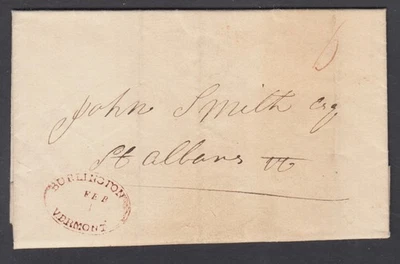 6
John Smith Esq
St Albans Vt
BURLINGTON
FEB
1
VERMONT